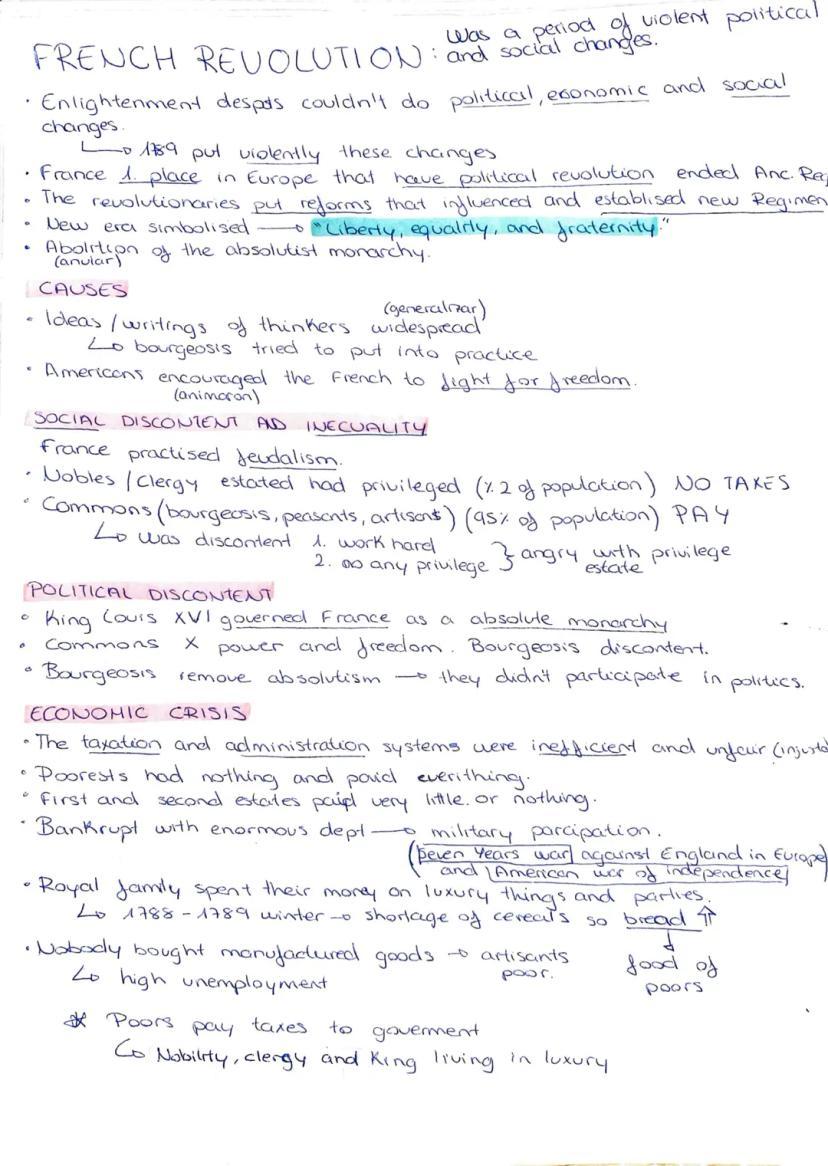 Was a period of violent political
FRENCH REVOLUTION: and social changes.
· Enlightenment despots couldn't do political, economic and social
changes.
↳ 1789 put violently these changes
· France 1. place in Europe that have political revolution ended Anc. Reg
· The revolutionaries put reforms that influenced and establised new Regimen
· New era simbolised → "Liberty, equality, and fraternity."
· Abolition of the absolutist monarchy.
(anular)
CAUSES
(generalizar)
· Ideas/writings of thinkers widespread
↳ bourgeosis tried to put into practice
· Americans encouraged the French to fight for freedom.
(animaron)
SOCIAL DISCONTENT AD INECUALITY
France practised feudalism.
· Nobles/Clergy estated had privileged (% 2 of population) NO TAXES
· Commons (bourgeosis, peasents, artisans) (95% of population) PAY
↳ was discontent 1. work hard
2. no any privilege } angry with privilege
estate
POLITICAL DISCONTENT
· King Louis XVI governed France as a absolute monarchy
· Commons X power and freedom. Bourgeosis discontent.
· Bourgeosis remove absolutism → they didn't participate in politics.
ECONOMIC CRISIS
· The taxation and administration systems were inefficient and unfair (injusto
· Poorests had nothing and paid everithing.
· First and second estates paid very little or nothing.
· Bankrupt with enormous dept → military parcipation.
(Seven Years war against England in Europe)
and American war of independence
· Royal family spent their money on luxury things and parties.
↳ 1788-1789 winter → shortage of cereals so bread ⇑
· Nobody bought manufactured goods → artisants food of
↳ high unemployment poor. poors
* Poors pay taxes to goverment
↳ Nobility, clergy and King living in luxury